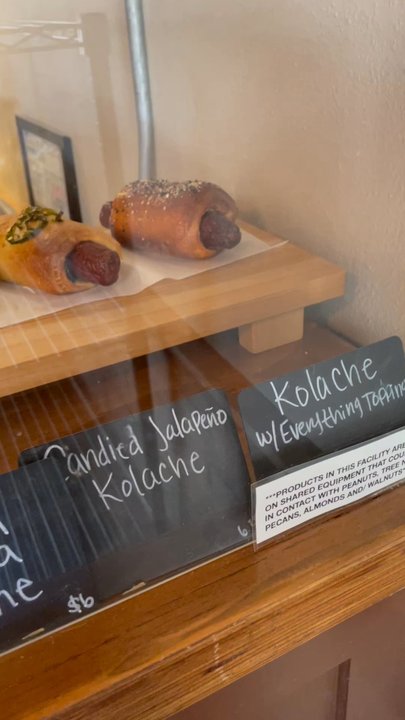 Candied Jalapeño
Kolache
$6
Kolache
w/Everything Topping
6
***PRODUCTS IN THIS FACILITY ARE
ON SHARED EQUIPMENT THAT COU
IN CONTACT WITH PEANUTS, TREE N
PECANS, ALMONDS AND/ WALNUTS*